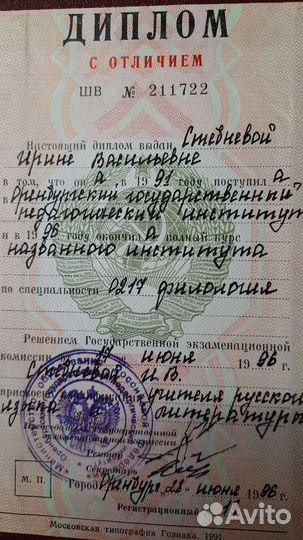 ДИПЛОМ
С ОТЛИЧИЕМ
ШВ № 211722
Настоящий диплом выдан Стебневой
Ирине Васильевне
в том, что он а в 1991 году поступил а
Оренбургский государственный
педагогический институт
и в 1996 году окончил а полный курс
названного института
по специальности 0217 филология
Решением Государственной экзаменационной
комиссии июня 1996 г.
Стебневой И.В.
учителя русского
языка и литературы
Государственной
экзаменационной комиссии
Ректор
Секретарь
М. П. Город Оренбург „28" июня 1996 г.
Регистрационный №
Московская типография Гознака. 1991.
Avito